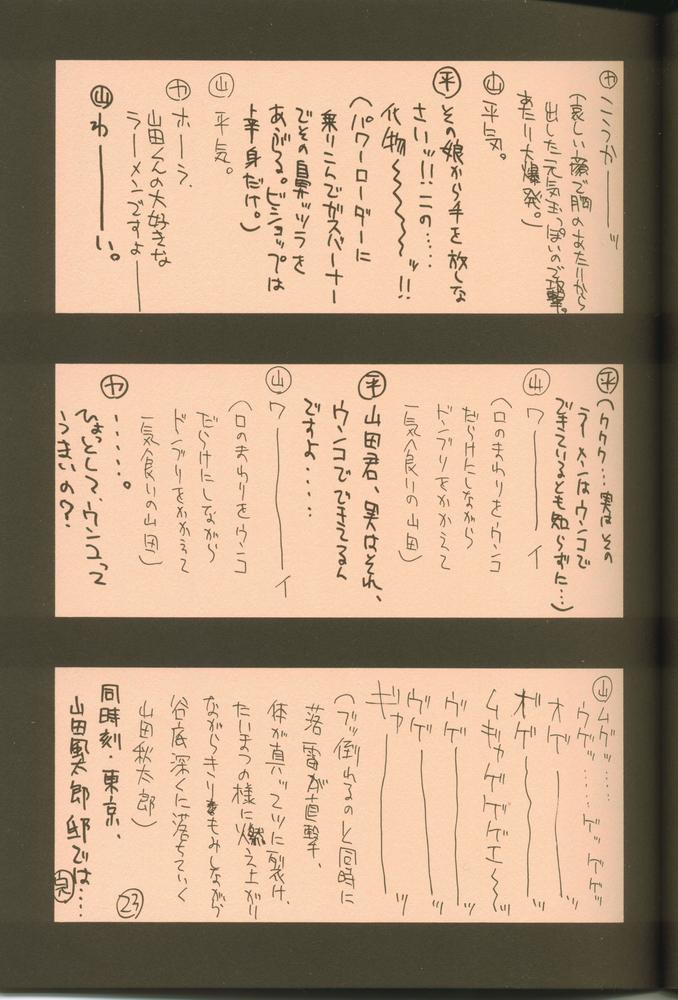 ヤ こうかーーッ
(哀しい顔で胸のあたりから
出した元気玉っぽいので攻撃。
あたり大爆発。)
山 平気。
平 その娘から手を放しな
さいッ!!この……
化物〜〜〜〜ッ!!
(パワーローダーに
乗りこんでガスバーナー
でその鼻ッツラを
あぶる。ビショップは
上半身だけ。)
山 平気。
ヤ ホーラ、
山田くんの大好きな
ラーメンですよ——
山 わ———い。
平 (ククク…実はその
ラーメンはウンコで
できているとも知らずに…)
山 ワ———イ
(口のまわりをウンコ
だらけにしながら
ドンブリをかかえて
一気食いの山田)
平 山田君、実はそれ、
ウンコでできてるん
ですよ……
山 ワ————イ
(口のまわりをウンコ
だらけにしながら
ドンブリをかかえて
一気食いの山田)
ヤ ……。
ひょっとして、ウンコって
うまいの?
山 ムゲッ……
ウゲッ……ゲッゲゲッ
オゲ———ッ
オゲ———ッ
ムギャゲゲゲエ〜〜ッ
ヴゲ———ッ
ヴゲ———ッ
ギャ———ッ
(ブッ倒れるのと同時に
落雷が直撃、
体が真ッ二ツに裂け、
たいまつの様に燃え上がり
ながらきりもみしながら
谷底深くに落ちていく
山田秋太郎)
同時刻・東京、
山田風太郎邸では……
完
23